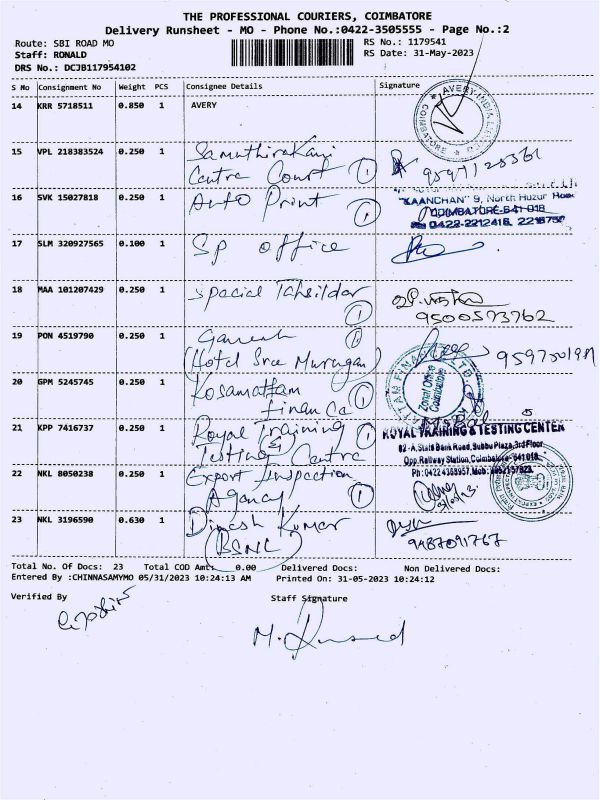 THE PROFESSIONAL COURIERS, COIMBATORE
Delivery Runsheet - MO - Phone No.:0422-3505555 - Page No.:2
Route: SBI ROAD MO
RS No.: 1179541
Staff: RONALD
RS Date: 31-May-2023
DRS No.: DCJB117954102
S No Consignment No Weight PCS Consignee Details Signature
14 KRR 5718511 0.850 1 AVERY
AVERY INDIA
COIMBATORE
15 VPL 218383524 0.250 1 Samuthirakani
Centre Court 1
16 SVK 15027818 0.250 1 Auto Print 1
"KAANCHAN" 9, North Huzur Road
COIMBATORE-641 018
0422-2212416, 2216750
17 SLM 320927565 0.100 1 Sp office
18 MAA 101207429 0.250 1 Special Tahsildar
1 9500573762
19 PON 4519790 0.250 1 Ganesh 1
(Hotel Sree Murugan)
20 GPM 5245745 0.250 1 Kosamattam
Finance 1
Zonal Office
Coimbatore
21 KPP 7416737 0.250 1 Royal Training
& Testing Centre 1
ROYAL TRAINING & TESTING CENTER
82-A, State Bank Road, Subbu Plaza, 3rd Floor,
Opp. Railway Station, Coimbatore-641 018.
22 NKL 8050238 0.250 1 Export Inspection
Agency 1
23 NKL 3196590 0.630 1 Dinesh Kumar
(BSNL)
Total No. Of Docs: 23 Total COD Amt: 0.00 Delivered Docs: Non Delivered Docs:
Entered By :CHINNASAMYMO 05/31/2023 10:24:13 AM Printed On: 31-05-2023 10:24:12
Verified By Staff Signature